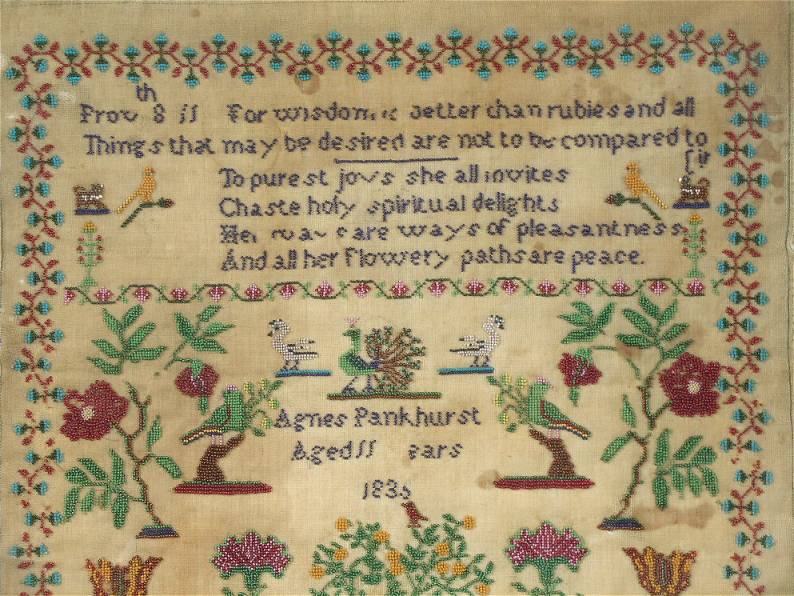 th
Prov 8 11 For wisdom is better than rubies and all
Things that may be desired are not to be compared to
To purest joys she all invites
Chaste holy spiritual delights
Her ways are ways of pleasantness
And all her flowery paths are peace.
Agnes Pankhurst
Aged 11 ears
183